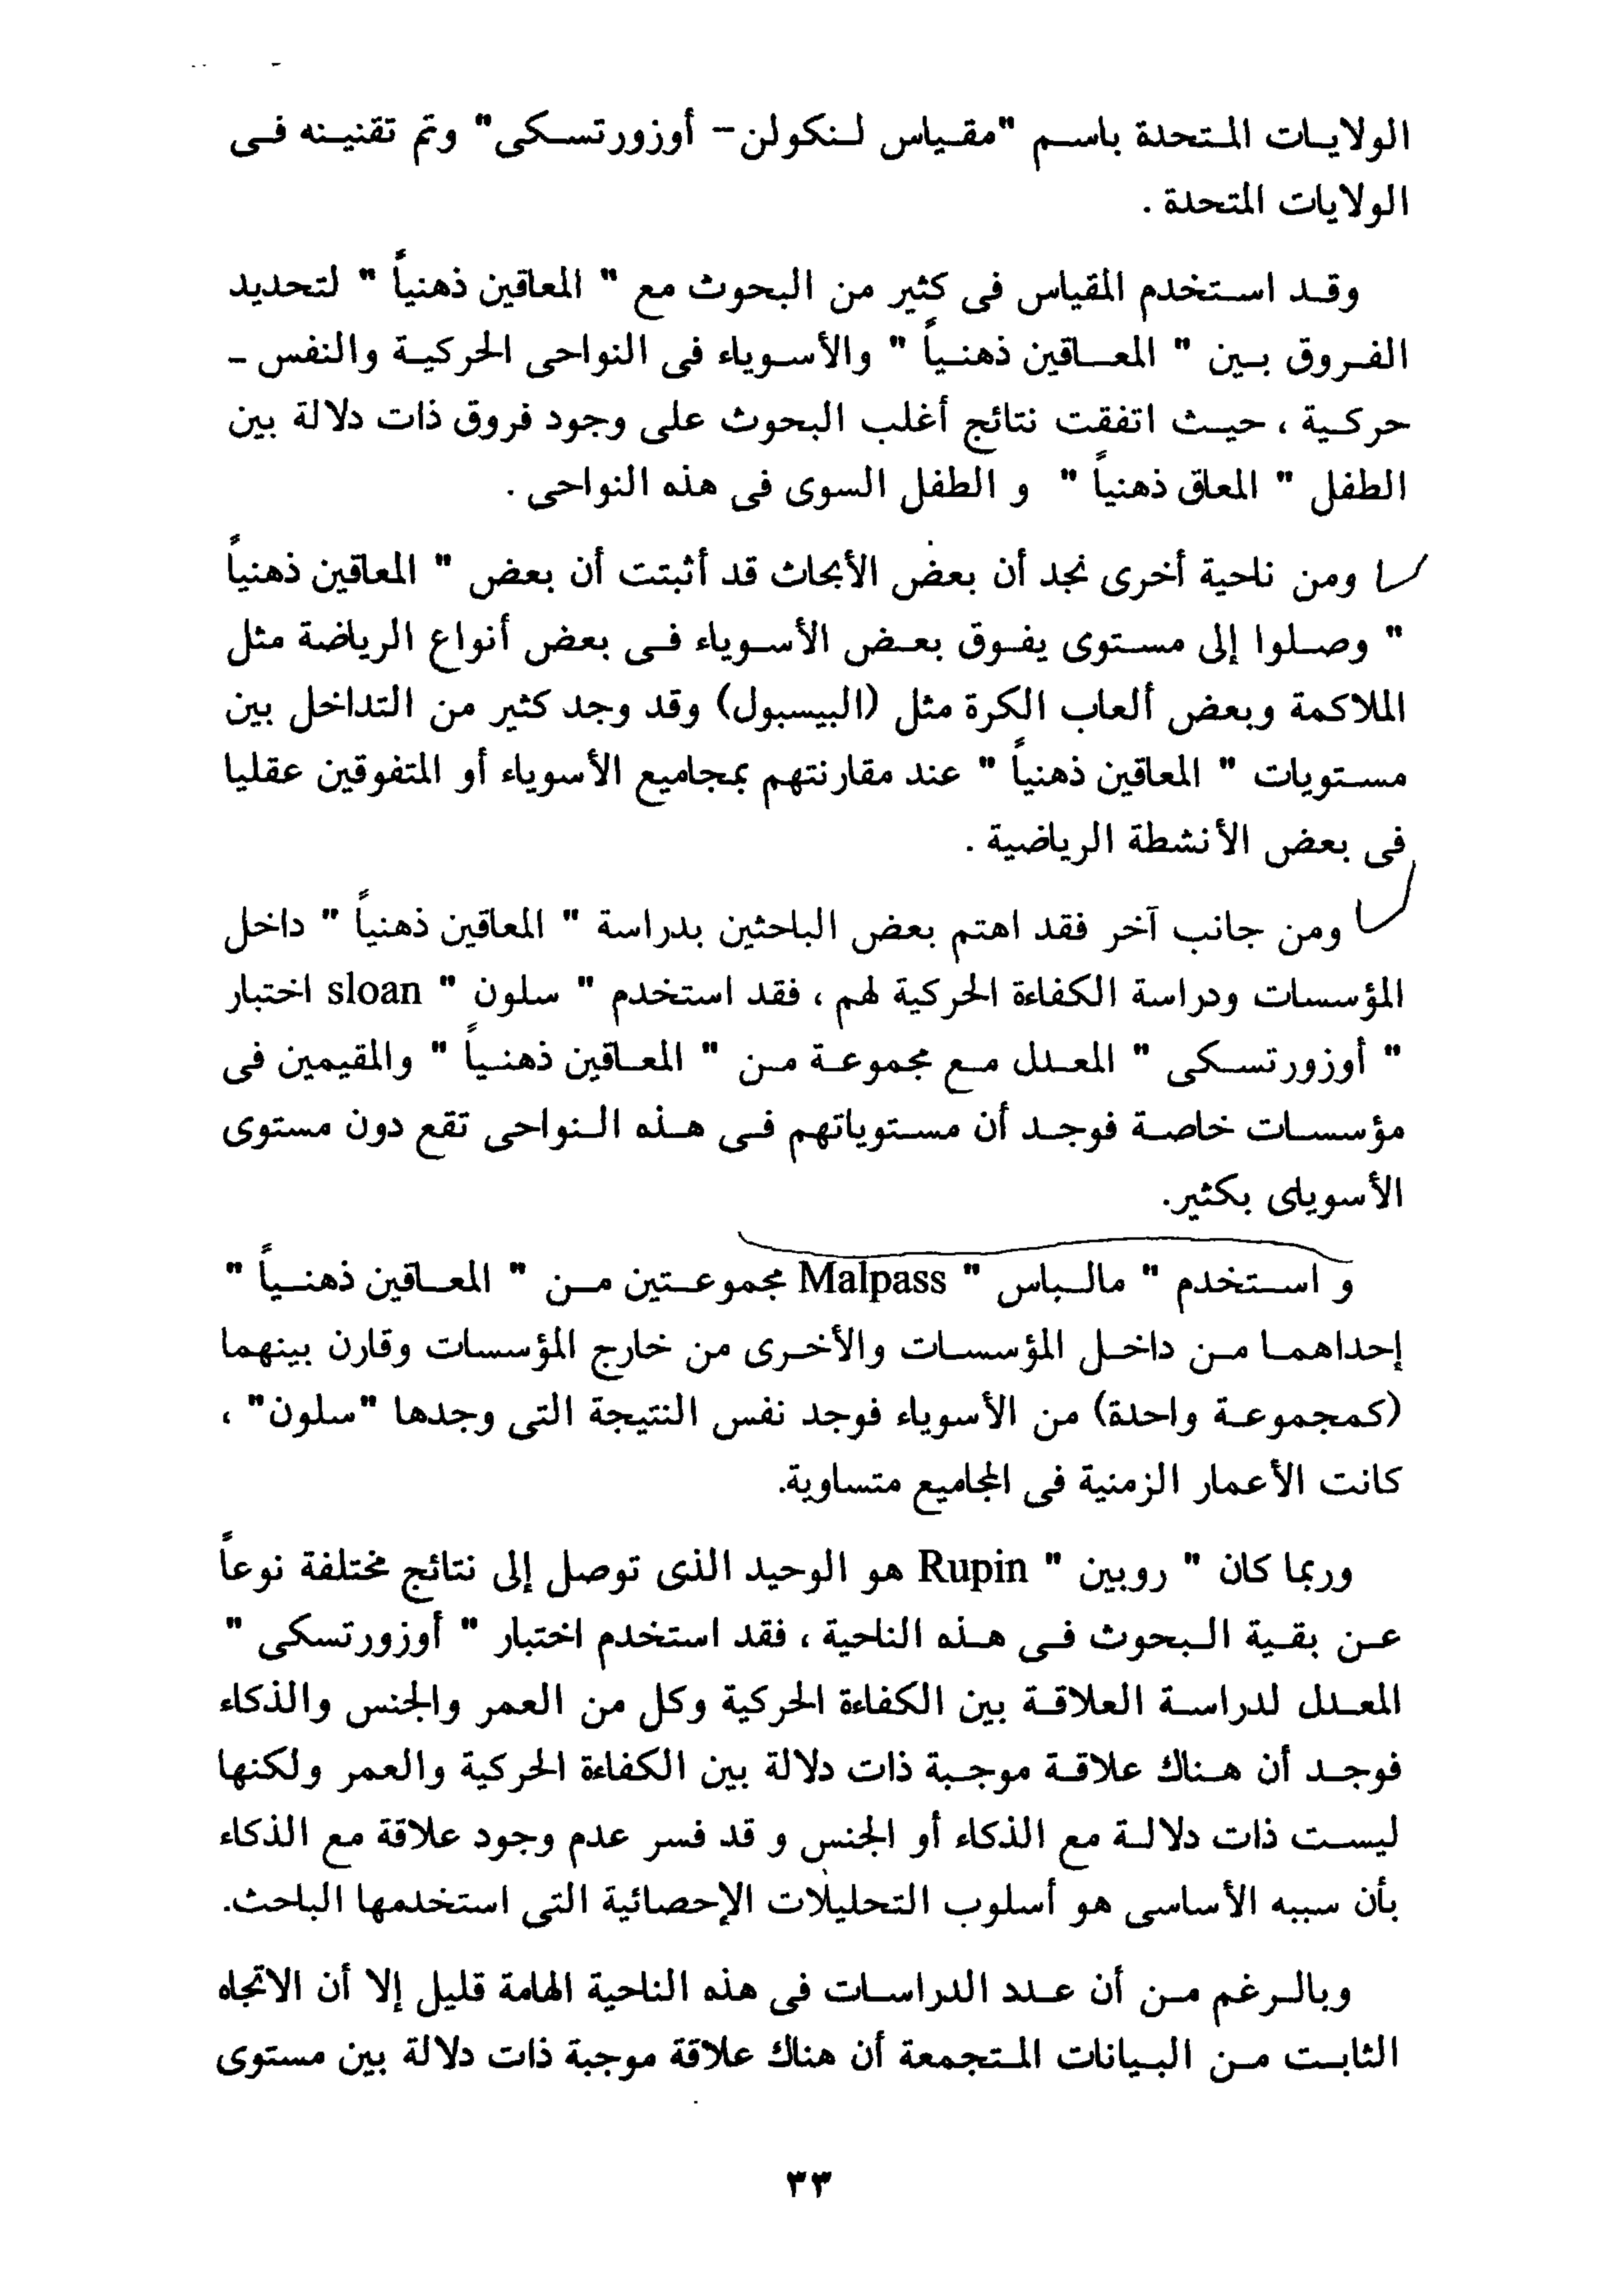 الولايات المتحدة باسم "مقياس لنكولن- أوزورتسكى" وتم تقنينه فى
الولايات المتحدة .
وقد استخدم المقياس فى كثير من البحوث مع " المعاقين ذهنياً " لتحديد
الفروق بين " المعاقين ذهنياً " والأسوياء فى النواحى الحركية والنفس -
حركية ، حيث اتفقت نتائج أغلب البحوث على وجود فروق ذات دلالة بين
الطفل " المعاق ذهنياً " و الطفل السوى فى هذه النواحى .
ومن ناحية أخرى نجد أن بعض الأبحاث قد أثبتت أن بعض " المعاقين ذهنياً
" وصلوا إلى مستوى يفوق بعض الأسوياء فى بعض أنواع الرياضة مثل
الملاكمة وبعض ألعاب الكرة مثل (البيسبول) وقد وجد كثير من التداخل بين
مستويات " المعاقين ذهنياً " عند مقارنتهم بمجاميع الأسوياء أو المتفوقين عقليا
فى بعض الأنشطة الرياضية .
ومن جانب آخر فقد اهتم بعض الباحثين بدراسة " المعاقين ذهنياً " داخل
المؤسسات ودراسة الكفاءة الحركية لهم ، فقد استخدم " سلون " sloan اختبار
" أوزورتسكى " المعدل مع مجموعة من " المعاقين ذهنياً " والمقيمين فى
مؤسسات خاصة فوجد أن مستوياتهم فى هذه النواحى تقع دون مستوى
الأسوياى بكثير.
و استخدم " مالباس " Malpass مجموعتين من " المعاقين ذهنياً "
إحداهما من داخل المؤسسات والأخرى من خارج المؤسسات وقارن بينهما
(كمجموعة واحدة) من الأسوياء فوجد نفس النتيجة التى وجدها "سلون" ،
كانت الأعمار الزمنية فى المجاميع متساوية.
وربما كان " روبين " Rupin هو الوحيد الذى توصل إلى نتائج مختلفة نوعاً
عن بقية البحوث فى هذه الناحية ، فقد استخدم اختبار " أوزورتسكى "
المعدل لدراسة العلاقة بين الكفاءة الحركية وكل من العمر والجنس والذكاء
فوجد أن هناك علاقة موجبة ذات دلالة بين الكفاءة الحركية والعمر ولكنها
ليست ذات دلالة مع الذكاء أو الجنس و قد فسر عدم وجود علاقة مع الذكاء
بأن سببه الأساسى هو أسلوب التحليلات الإحصائية التى استخدمها الباحث.
وبالرغم من أن عدد الدراسات فى هذه الناحية الهامة قليل إلا أن الاتجاه
الثابت من البيانات المتجمعة أن هناك علاقة موجبة ذات دلالة بين مستوى
٣٣